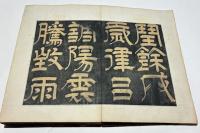 閏餘成
歲律呂
調陽雲
騰致雨